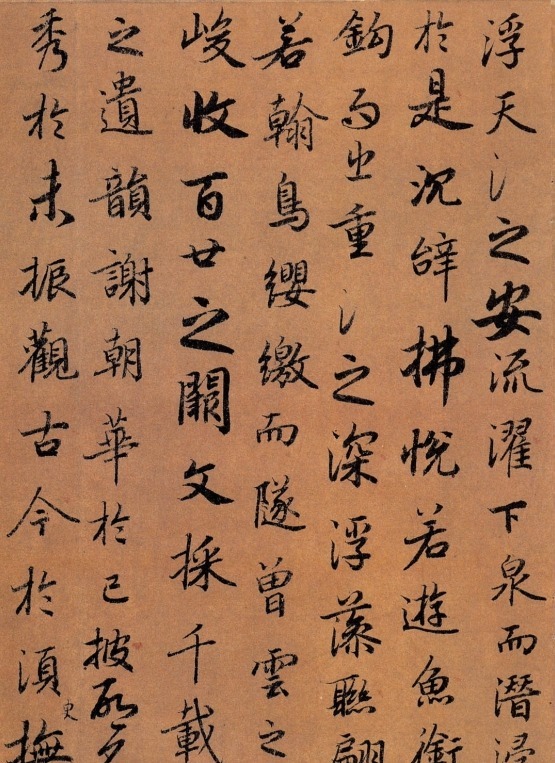 浮天氵之安流濯下泉而潛浸
於是沉辭拂悅若遊魚銜
鈎而出重氵之深浮藻聯翩
若翰鳥纓繳而隧曾雲之
峻收百廿之闕文採千載
之遺韻謝朝華於已披啓夕
秀於未振觀古今於須史撫